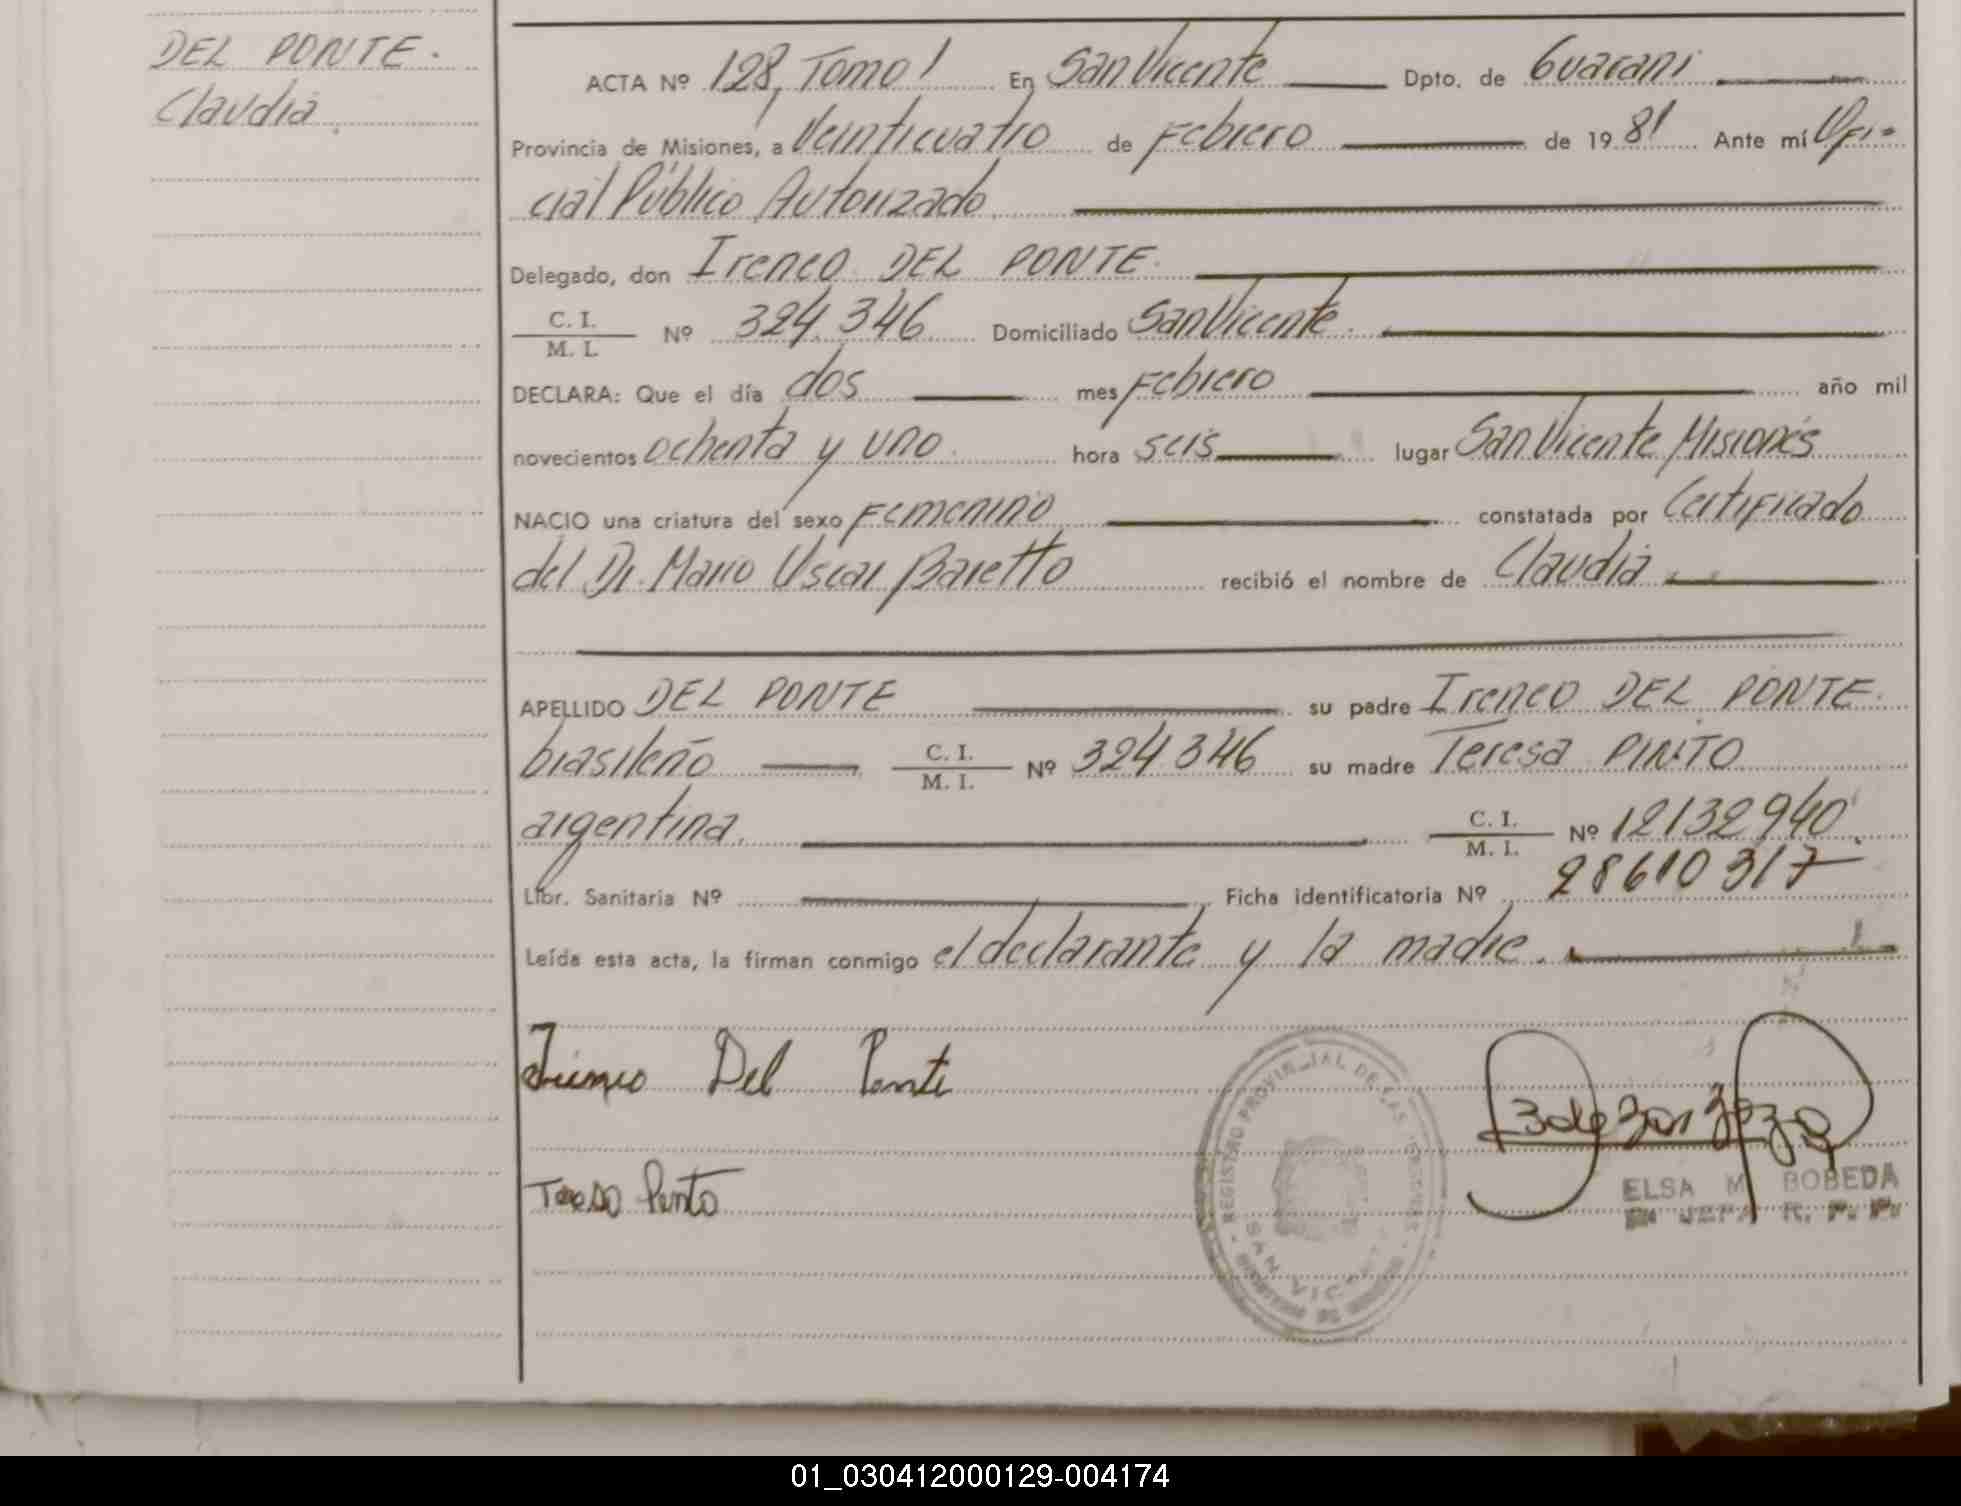 DEL PONTE.
Claudia
ACTA Nº 128, Tomo 1 En San Vicente Dpto. de Guarani
Provincia de Misiones, a Veinticuatro de Febrero de 1981 Ante mí Ofi-
cial Público Autorizado
Delegado, don Ireneo DEL PONTE.
C. I. / M. I. Nº 324.346 Domiciliado San Vicente.
DECLARA: Que el día dos mes Febrero año mil
novecientos ochenta y uno. hora seis lugar San Vicente Misiones
NACIO una criatura del sexo Femenino constatada por Certificado
del Dr. Mario Oscar Baretto recibió el nombre de Claudia
APELLIDO DEL PONTE su padre Ireneo DEL PONTE.
brasileño C. I. / M. I. Nº 324346 su madre Teresa PINTO
argentina. C. I. / M. I. Nº 12132940.
Libr. Sanitaria Nº Ficha identificatoria Nº 28610317
Leída esta acta, la firman conmigo el declarante y la madre.
Irineo Del Ponte
Teresa Pinto
REGISTRO PROVINCIAL DE LAS PERSONAS
SAN VICENTE
ELSA M. BOBEDA
JEFA R. P. P.
01_030412000129-004174